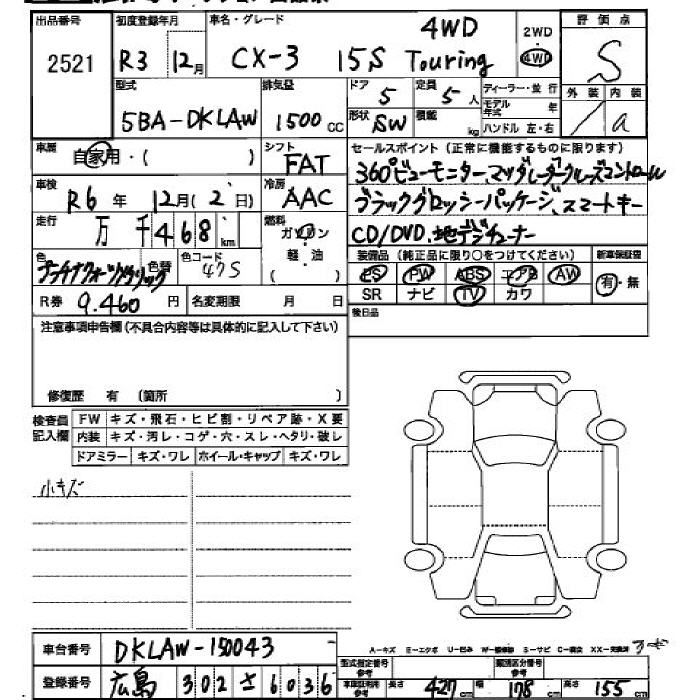 出品番号 初度登録年月 車名・グレード 4WD 2WD 4WD 評価点
2521 R3 12月 CX-3 15S Touring S
型式 排気量 ドア 定員 ディーラー・並行 外装 内装
5BA-DKLAW 1500cc 5 5人 モデル年式 年 / a
形状 SW 積載 kg ハンドル 左・右
車歴 自家用・( ) シフト FAT セールスポイント(正常に機能するものに限ります)
車検 R6年 12月(2日) 冷房 AAC 360°ビューモニター、マツダレーダークルーズコントロール
走行 万 千468km 燃料 ガソリン・軽・油( ) ブラックグロッシーパッケージ、スマートキー
CD/DVD、地デジチューナー
色 プラチナクォーツメタリック 色替 色コード 47S 装備品(純正品に限り○をつけてください) 新車保証書
PS PW ABS エアB AW 有・無
R券 9.460円 名変期限 月 日 SR ナビ TV カワ
注意事項申告欄(不具合内容等は具体的に記入して下さい) 後日品
修復歴 有(箇所 )
検査員記入欄 FW キズ・飛石・ヒビ割・リペア跡・X要
内装 キズ・汚レ・コゲ・穴・スレ・ヘタリ・破レ
ドアミラー キズ・ワレ ホイール・キャップ キズ・ワレ
小キズ
車台番号 DKLAW-150043
A-キズ E-エクボ U-凹み W-補修跡 S-サビ C-腐蝕 XX-交換済
登録番号 広島 302 さ 6036
型式指定番号参考 類別区分番号参考
車検証判明参考 長さ 427cm 幅 178cm 高さ 155cm